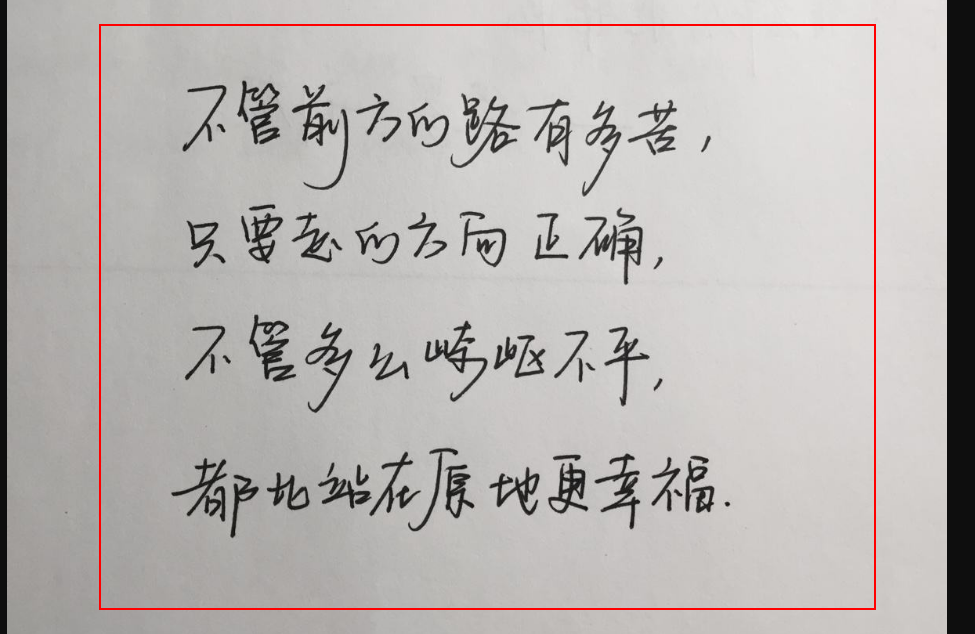 不管前方的路有多苦，
只要走的方向正确，
不管多么崎岖不平，
都比站在原地更幸福.